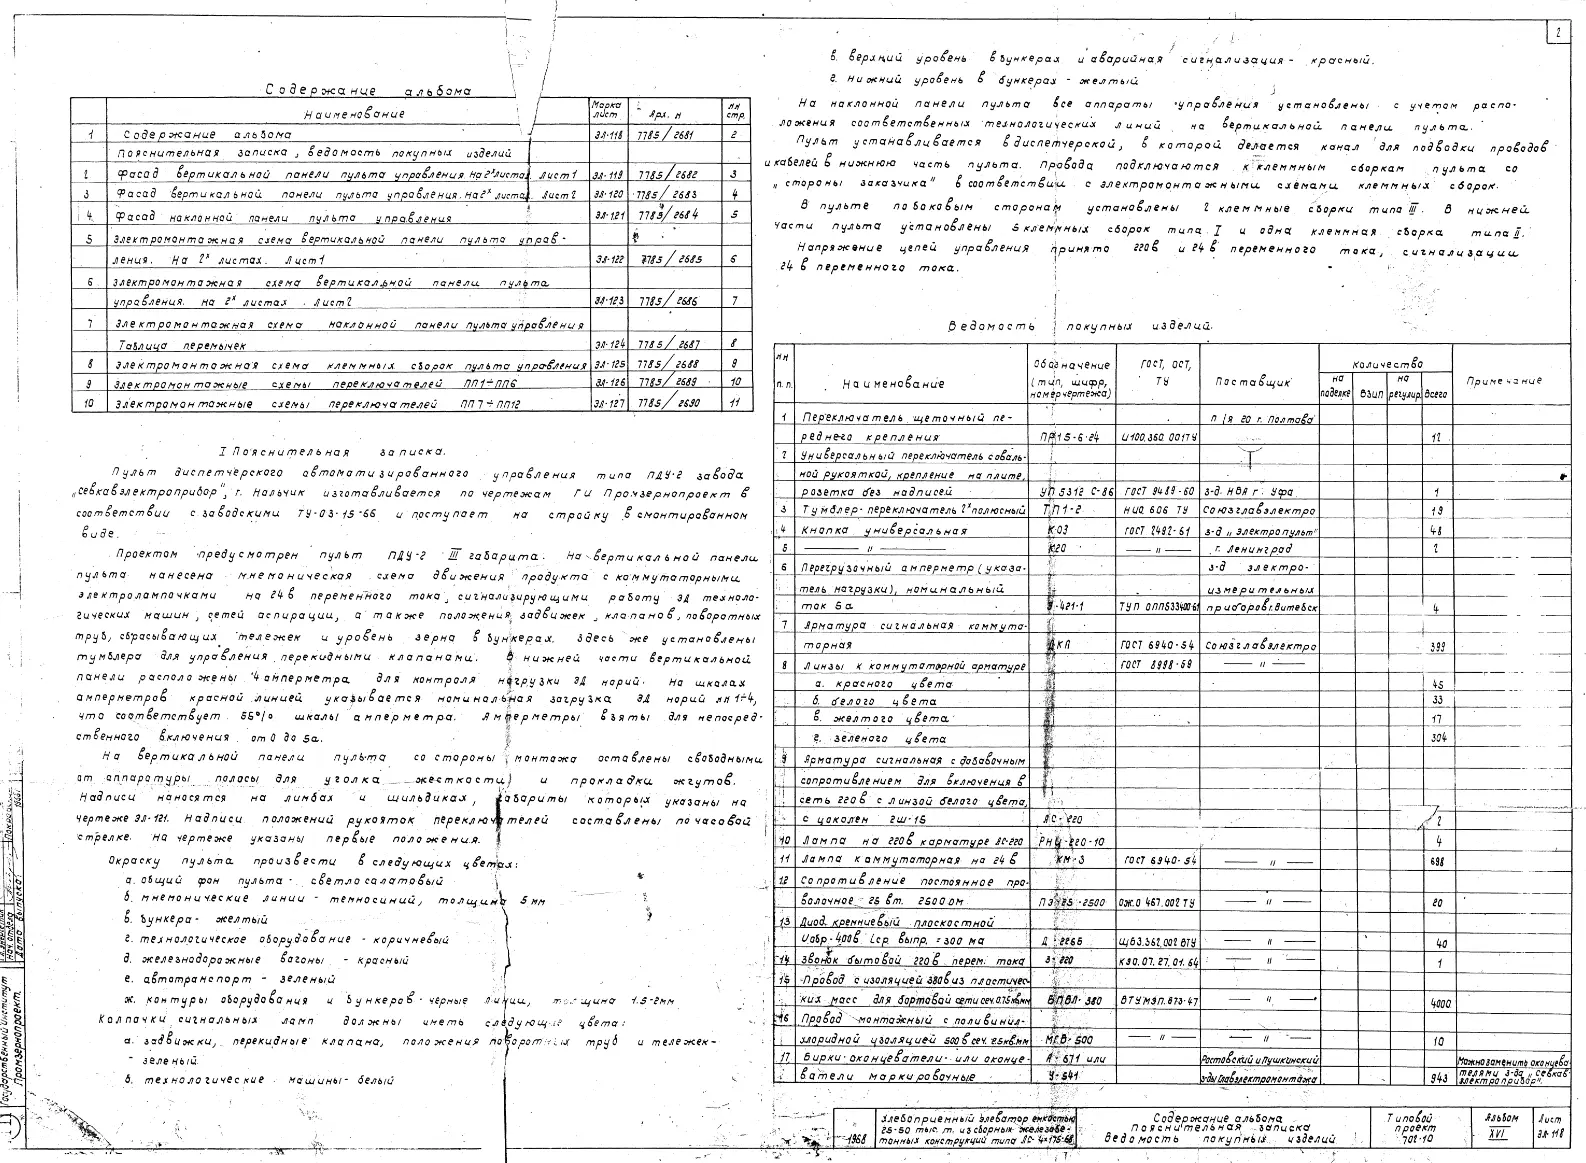 2
Содержание альбома
Наименование | Марка лист | Арх. н | нн стр.
1 | Содержание альбома | ЭЛ-118 | 7785/2681 | 2
Пояснительная записка, ведомость покупных изделий
2 | Фасад вертикальной панели пульта управления. На 2х листах лист 1 | ЭЛ-119 | 7785/2682 | 3
3 | Фасад вертикальной панели пульта управления. На 2х листах лист 2 | ЭЛ-120 | 7785/2683 | 4
4 | Фасад наклонной панели пульта управления | ЭЛ-121 | 7785/2684 | 5
5 | Электромонтажная схема вертикальной панели пульта управ-
ления. На 2х листах. Лист 1 | ЭЛ-122 | 7785/2685 | 6
6 | Электромонтажная схема вертикальной панели пульта
управления. На 2х листах. Лист 2 | ЭЛ-123 | 7785/2686 | 7
7 | Электромонтажная схема наклонной панели пульта управления
Таблица перемычек | ЭЛ-124 | 7785/2687 | 8
8 | Электромонтажная схема клеммных сборок пульта управления | ЭЛ-125 | 7785/2688 | 9
9 | Электромонтажные схемы переключателей ПП1÷ПП6 | ЭЛ-126 | 7785/2689 | 10
10 | Электромонтажные схемы переключателей ПП7÷ПП12 | ЭЛ-127 | 7785/2690 | 11
I Пояснительная записка.
Пульт диспетчерского автоматизированного управления типа ПДУ-2 завода
„Севкавэлектроприбор", г. Нальчик изготавливается по чертежам ГИ Промзернопроект в
соответствии с заводскими ТУ-03-15-66 и поступает на стройку в смонтированном
виде.
Проектом предусмотрен пульт ПДУ-2 III габарита. На вертикальной панели
пульта нанесена мнемоническая схема движения продукта с коммутаторными
электролампочками на 24 в переменного тока, сигнализирующими работу ЭД техноло-
гических машин, сетей аспирации, а также положения задвижек, клапанов, поворотных
труб, сбрасывающих тележек и уровень зерна в бункерах. Здесь же установлены
тумблера для управления перекидными клапанами. В нижней части вертикальной
панели расположены 4 амперметра для контроля нагрузки ЭД норий. На шкалах
амперметров красной линией указывается номинальная загрузка ЭД норий нн 1÷4,
что соответствует 55% шкалы амперметра. Амперметры взяты для непосред-
ственного включения от 0 до 5а.
На вертикальной панели пульта со стороны монтажа оставлены свободными
от аппаратуры полосы для уголка жесткости и прокладки жгутов.
Надписи наносятся на лимбах и шильдиках, габариты которых указаны на
чертеже ЭЛ-121. Надписи положений рукояток переключателей составлены по часовой
стрелке. На чертеже указаны первые положения.
Окраску пульта произвести в следующих цветах:
а. общий фон пульта - светлосалатовый
б. мнемонические линии - темносиний, толщина 5 мм
в. бункера - желтый
г. технологическое оборудование - коричневый
д. железнодорожные вагоны - красный
е. автотранспорт - зеленый
ж. контуры оборудования и бункеров - черные линии, толщина 1.5-2мм
Колпачки сигнальных ламп должны иметь следующие цвета:
а. задвижки, перекидные клапана, положения поворотных труб и тележек-
- зеленый.
б. технологические машины - белый
в. верхний уровень в бункерах и аварийная сигнализация - красный.
г. нижний уровень в бункерах - желтый
На наклонной панели пульта все аппараты управления установлены с учетом распо-
ложения соответственных технологических линий на вертикальной панели пульта.
Пульт устанавливается в диспетчерской, в которой делается канал для подводки проводов
и кабелей в нижнюю часть пульта. Провода подключаются к клеммным сборкам пульта со
„стороны заказчика" в соответствии с электромонтажными схемами клеммных сборок.
В пульте по боковым сторонам установлены 2 клеммные сборки типа III. В нижней
части пульта установлены 5 клеммных сборок типа I и одна клеммная сборка типа II.
Напряжение цепей управления принято 220в и 24 в переменного тока, сигнализации
24 в переменного тока.
Ведомость покупных изделий.
нн п.п. | Наименование | Обозначение (тип, шифр, номер чертежа) | ГОСТ, ОСТ, ТУ | Поставщик | Количество: на поделке | ВЗИП | на регулир. | Всего | Примечание
1 | Переключатель щеточный пе- | п/я 20 г. Полтава
реднего крепления | ПР15-6-24 | И100.360.001ТУ | 12
2 | Универсальный переключатель с оваль-
ной рукояткой, крепление на плите,
розетка без надписей | УП 5312 С-86 | ГОСТ 9489-60 | з-д НВА г. Уфа | 1
3 | Тумблер-переключатель 2х полюсный | ТП1-2 | НИО 606 ТУ | Союзглавэлектро | 19
4 | Кнопка универсальная | К-03 | ГОСТ 2492-61 | з-д „Электропульт" | 48
5 | — " — | К20 | — " — | г. Ленинград | 2
6 | Перегрузочный амперметр (указа- | з-д электро-
тель нагрузки), номинальный | измерительных
ток 5а | Э-421-1 | ТУП ОПП.533.400-61 | приборов г. Витебск | 4
7 | Арматура сигнальная коммута-
торная | АКП | ГОСТ 6940-54 | Союзглавэлектро | 399
8 | Линзы к коммутаторной арматуре | ГОСТ 8998-59 | — " —
а. красного цвета | 45
б. белого цвета | 33
в. желтого цвета | 17
г. зеленого цвета | 304
9 | Арматура сигнальная с добавочным
сопротивлением для включения в
сеть 220в с линзой белого цвета,
с цоколем 2Ш-15 | АС-220 | 2
10 | Лампа на 220в к арматуре АС-220 | РНЦ-220-10 | 4
11 | Лампа коммутаторная на 24 в | КМ-3 | ГОСТ 6940-54 | — " — | 698
12 | Сопротивление постоянное про-
волочное 25 вт. 2500 ом | ПЭ-25-2500 | ОЖ.0 467.002 ТУ | — " — | 20
13 | Диод кремниевый плоскостной
Uобр-400в Iср. выпр. = 300 ма | Д-226Б | ЩБ3.362.002 ВТУ | — " — | 40
14 | Звонок бытовой 220в перем. тока | З-220 | КЗ0.07.27.01.64 | — " — | 1
15 | Провод с изоляцией 380в из пластичес-
ких масс для бортовой сети сеч. 0.75 кв.мм | БПВЛ-380 | ВТУ МЭП.873-47 | — " — | 4000
16 | Провод монтажный с поливинил-
хлоридной изоляцией 500 в сеч. 2.5 кв.мм | МГВ-500 | — " — | — " — | 10
17 | Бирки-оконцеватели или оконце- | А-671 или | Ростовский и Пушкинский | Можно заменить оконцева-
ватели маркировочные | У-541 | з-ды Главэлектромонтажа | 943 | телями з-да „Севкав-
электроприбор".
1968 | Хлебоприемный элеватор емкостью
25-50 тыс. т. из сборных железобе-
тонных конструкций типа ЛС-4×175-68
Содержание альбома
Пояснительная записка
Ведомость покупных изделий
Типовой проект 702-10
Альбом XVI
Лист ЭЛ-118
Государственный институт
Промзернопроект.
Нач. отдела
Дата выпуска: